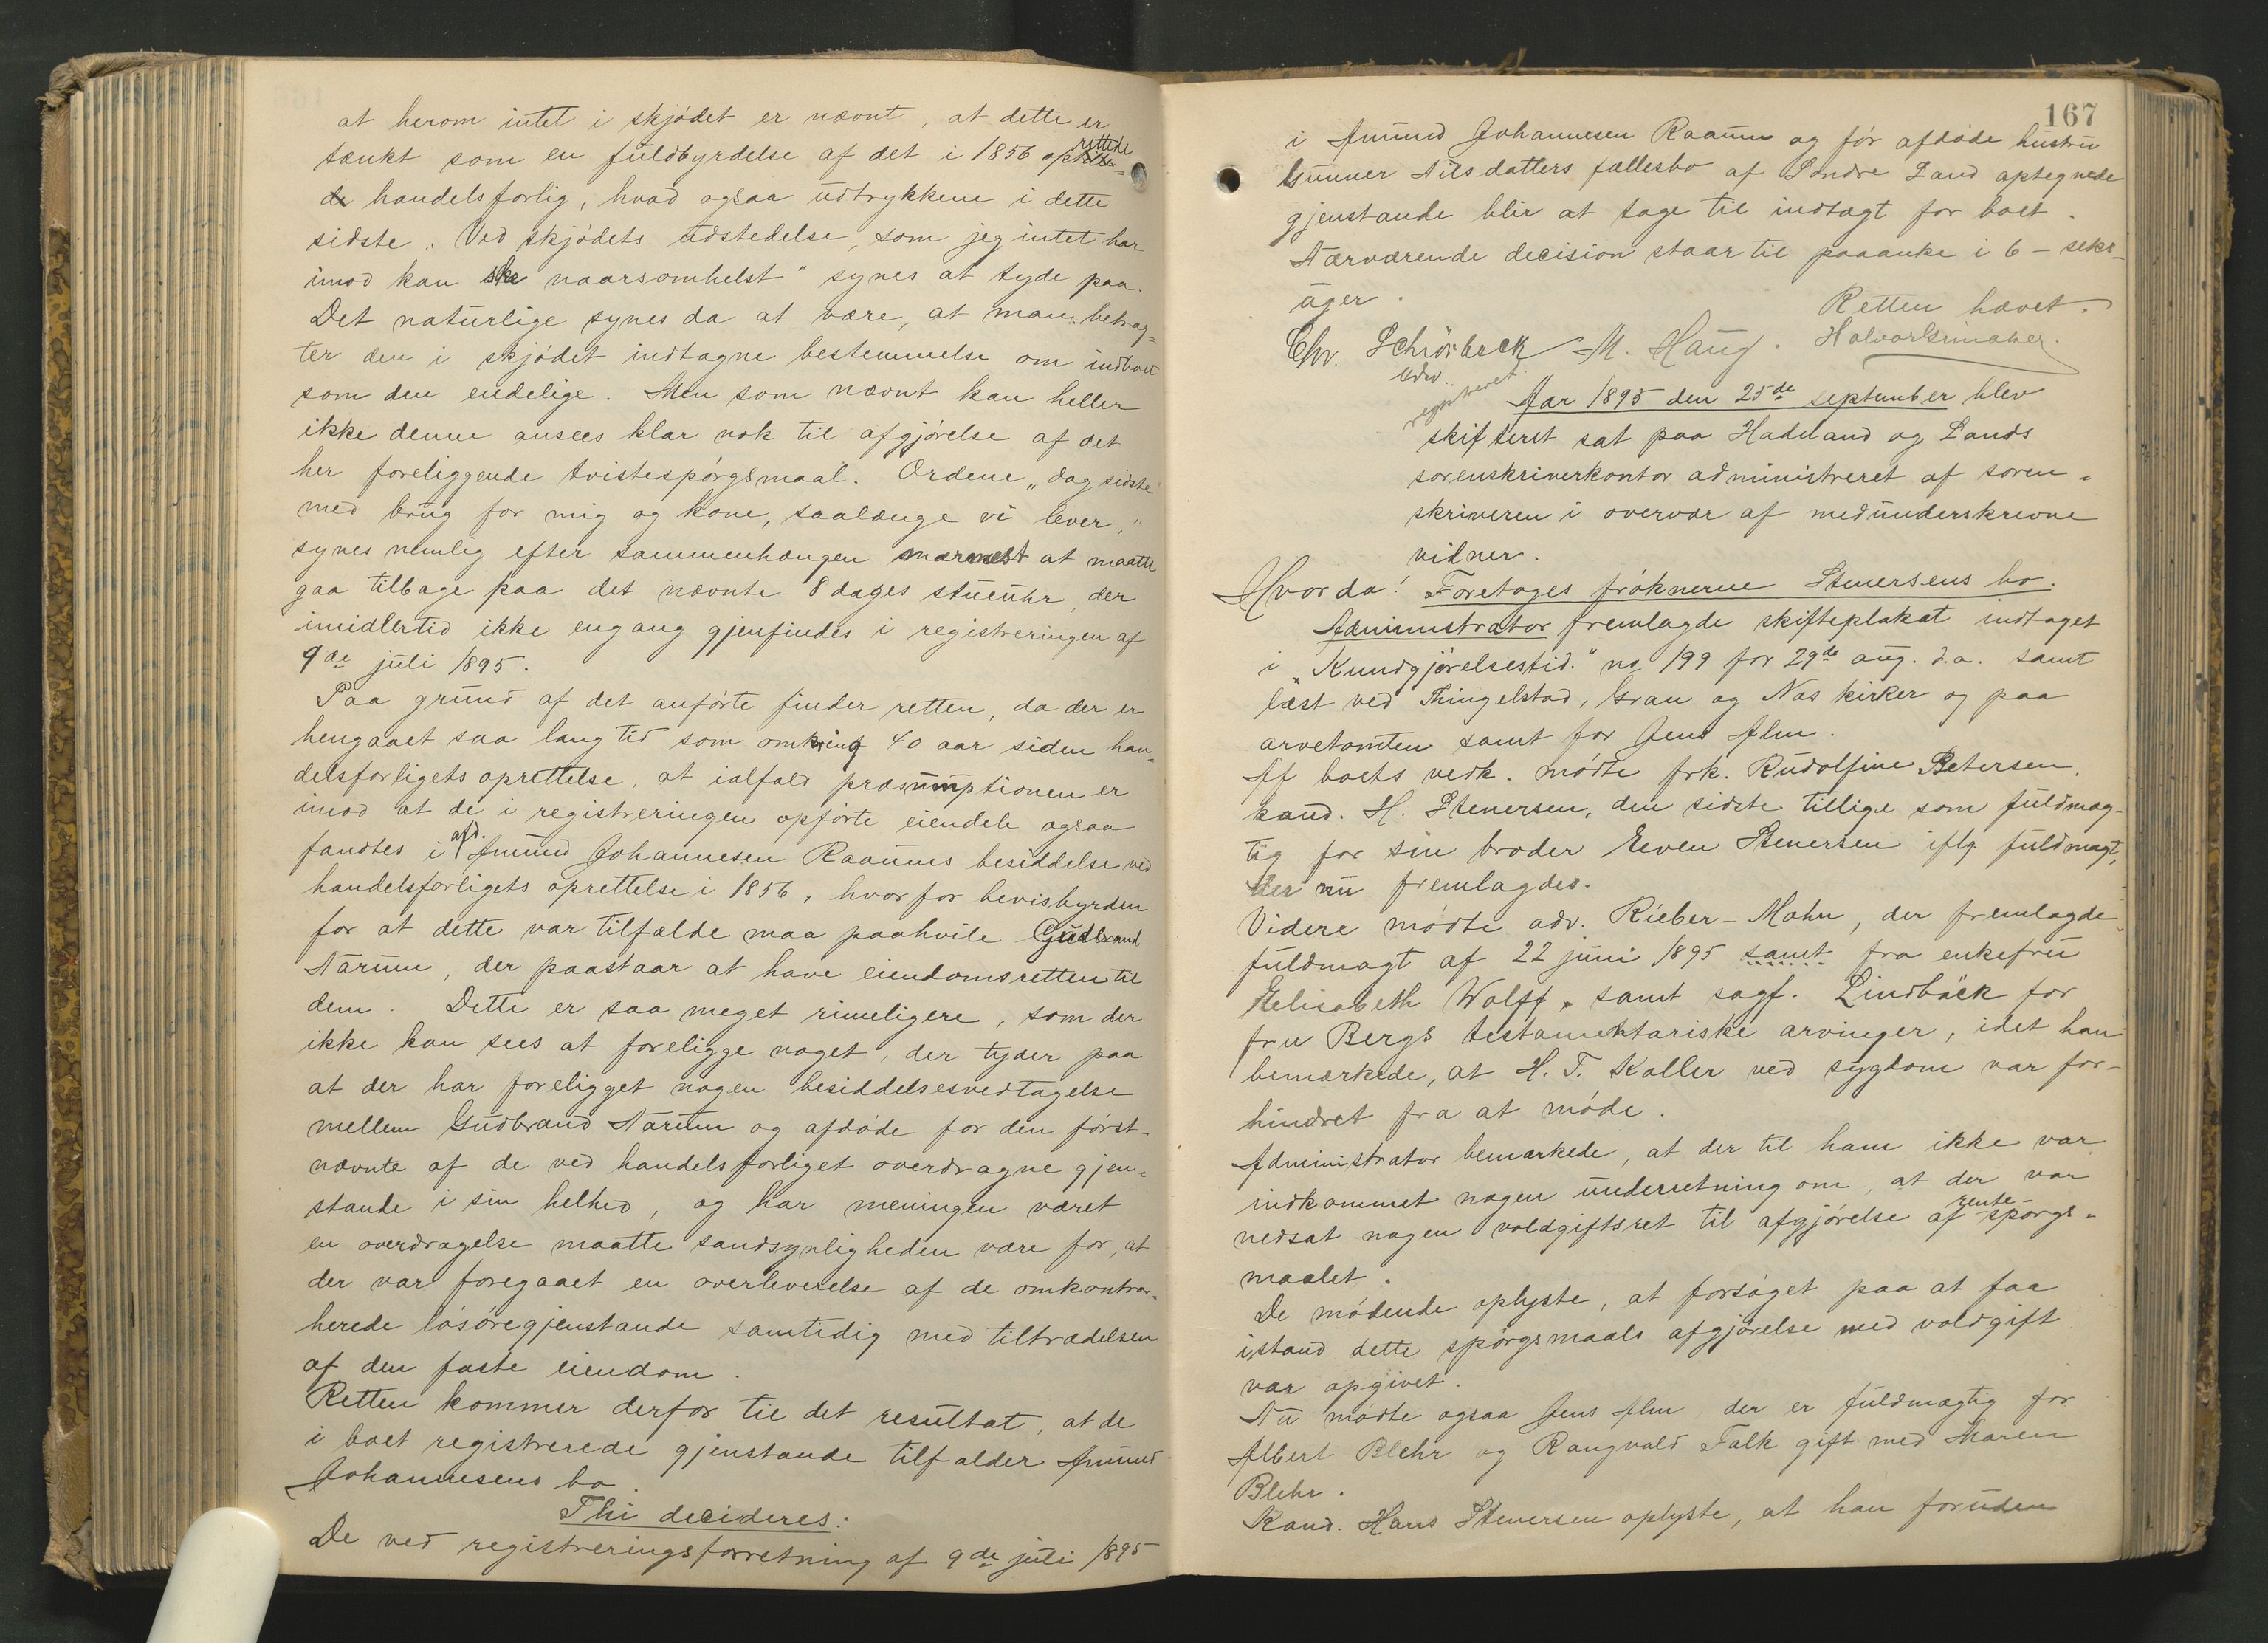 at herom intet i skjødet er nævnt, at dette er
tænkt som en fuldbyrdelse af det i 1856 oprettede
handelsforlig, hvad ogsaa udtrykkene i dette
sidste „Ved skjødets udstedelse, som jeg intet har
imod kan ske naarsomhelst" synes at tyde paa.
Det naturlige synes da at være, at man betrag-
ter den i skjødet indtagne bestemmelse om indboet
som den endelige. Men som nævnt kan heller
ikke denne ansees klar nok til afgjørelse af det
her foreliggende tvistespørgsmaal. Ordene „dog sidste
med brug for mig og kone, saalænge vi lever,"
synes nemlig efter sammenhængen nærmest at maatte
gaa tilbage paa det nævnte 8 dages stueuhr, der
imidlertid ikke engang gjenfindes i registreringen af
9de juli 1895.
Paa grund af det anførte finder retten, da der er
hengaaet saa lang tid som omkring 40 aar siden han-
delsforligets oprettelse, at ialfald præsumptionen er
imod at de i registreringen opførte eiendele ogsaa
fandtes i afd. Amund Johannesen Raaums besiddelse ved
handelsforligets oprettelse i 1856, hvorfor bevisbyrden
for at dette var tilfælde maa paahvile Gudbrand
Narum, der paastaar at have eiendomsretten til
dem. Dette er saa meget rimeligere, som der
ikke kan sees at foreligge noget, der tyder paa
at der har foreligget nogen besiddelsesvedtagelse
mellem Gudbrand Narum og afdøde for den først-
nævnte af de ved handelsforliget overdragne gjen-
stande i sin helhed, og har meningen været
en overdragelse maatte sandsynligheden være for, at
der var foregaaet en overleverelse af de omkontra-
herede løsøregjenstande samtidig med tiltrædelsen
af den faste eiendom.
Retten kommer derfor til det resultat, at de
i boet registrerede gjenstande tilfalder Amund
Johannesens bo.
Thi decideres:
De ved registreringsforretning af 9de juli 1895
167
i Amund Johannesen Raaum og før afdøde hustru
Gunner Nilsdatters fællesbo af Søndre Land optegnede
gjenstande blir at tage til indtægt for boet.
Nærværende decision staar til paaanke i 6 - seks -
uger.
Retten hævet.
Chr. Schiørbeck M. Haug. Halvor Grinaker.
Aar 1895 den 25de september blev
skifteret sat paa Hadeland og Lands
sorenskriverkontor administreret af soren-
skriveren i overvær af medunderskrevne
vidner.
Hvorda: Foretoges frøknerne Stenersens bo.
Administrator fremlagde skifteplakat indtaget
i „Kundgjørelsestid." no 199 for 29de aug. d.a. samt
læst ved Thingelstad, Gran og Næs kirker og paa
arvetomten samt for Jens Alm.
Af boets vedk. mødte frk. Rudolfine Petersen,
kand. H. Stenersen, den sidste tillige som fuldmæg-
tig for sin broder Even Stenersen iflg fuldmagt,
der nu fremlagdes.
Videre mødte adv. Rieber-Mohn, der fremlagde
fuldmagt af 22 juni 1895 samt fra enkefru
Elisabeth Wolff, samt sagf. Lindbäck for
fru Bergs testamentariske arvinger, idet han
bemærkede, at H. T. Koller ved sygdom var for-
hindret fra at møde.
Administrator bemærkede, at der til ham ikke var
indkommet nogen underretning om, at der var
nedsat nogen voldgiftsret til afgjørelse af rente-spørgs-
maalet.
De mødende oplyste, at forsøget paa at faa
istand dette spørgsmaals afgjørelse ved voldgift
var opgivet.
Nu mødte ogsaa Jens Alm der er fuldmægtig for
Albert Blehr og Rangvald Falk gift med Maren
Blehr.
Kand. Hans Stenersen oplyste, at han foruden